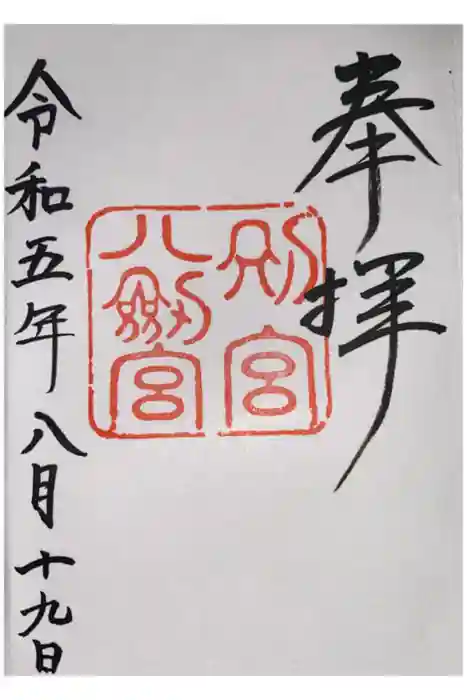 奉拝
別宮
八劔宮
令和五年八月十九日